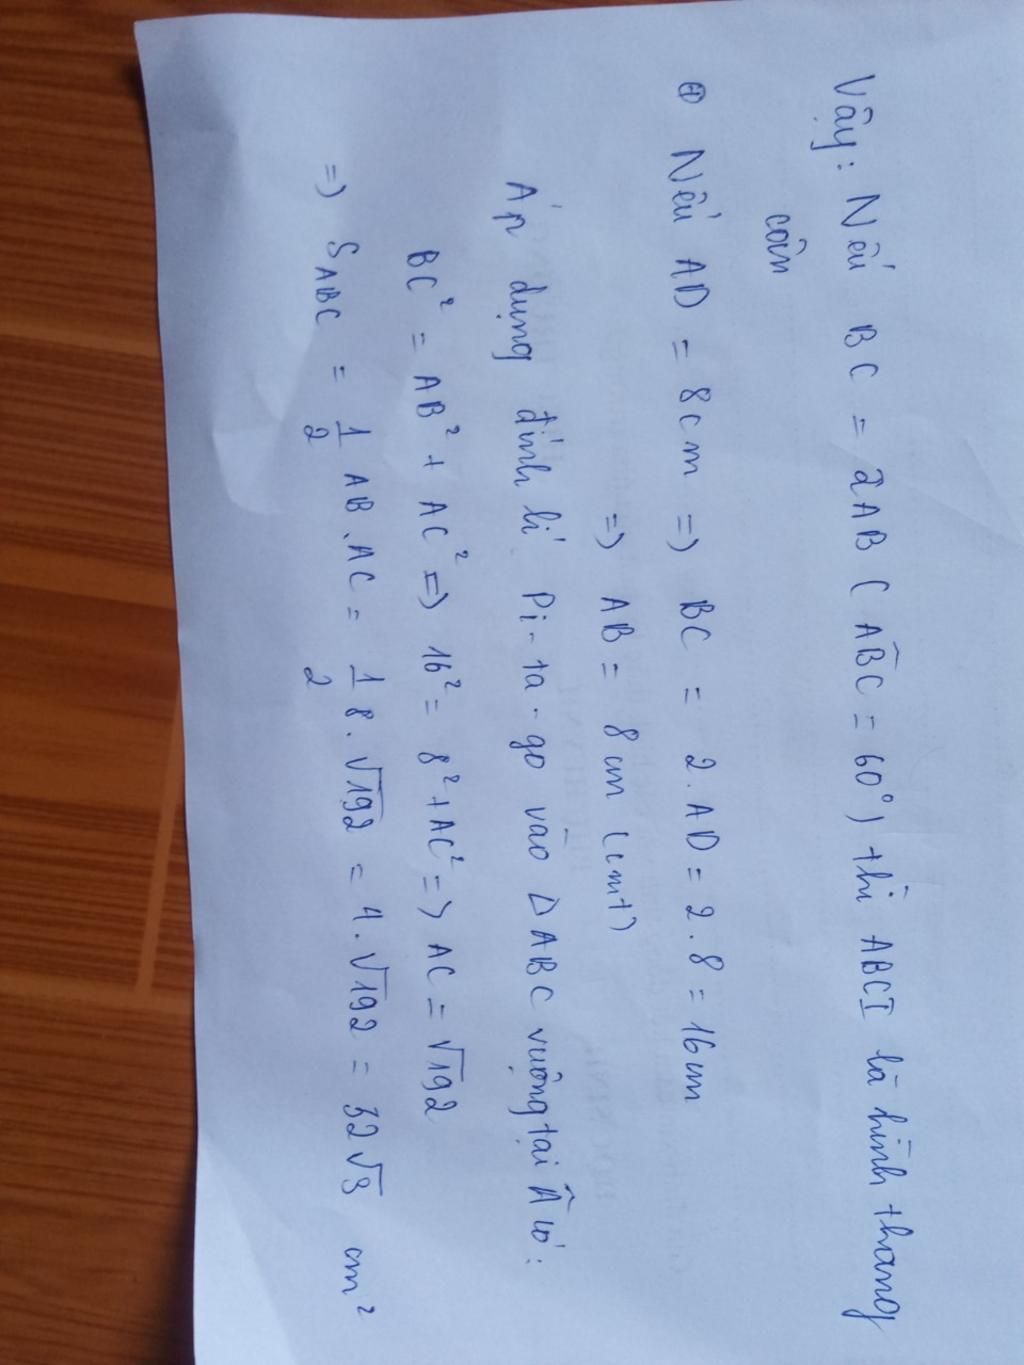 Vậy: Nếu BC = 2AB ( ABC = 60°) thì ABCI là hình thang
cân
⊕ Nếu AD = 8cm => BC = 2. AD = 2.8 = 16cm
=> AB = 8cm (cmt)
Áp dụng định lí Pi-ta-go vào Δ ABC vuông tại Â có:
BC² = AB² + AC² => 16² = 8² + AC² => AC = √192
=> S_ABC = 1/2 AB.AC = 1/2 8.√192 = 4.√192 = 32√3 cm²